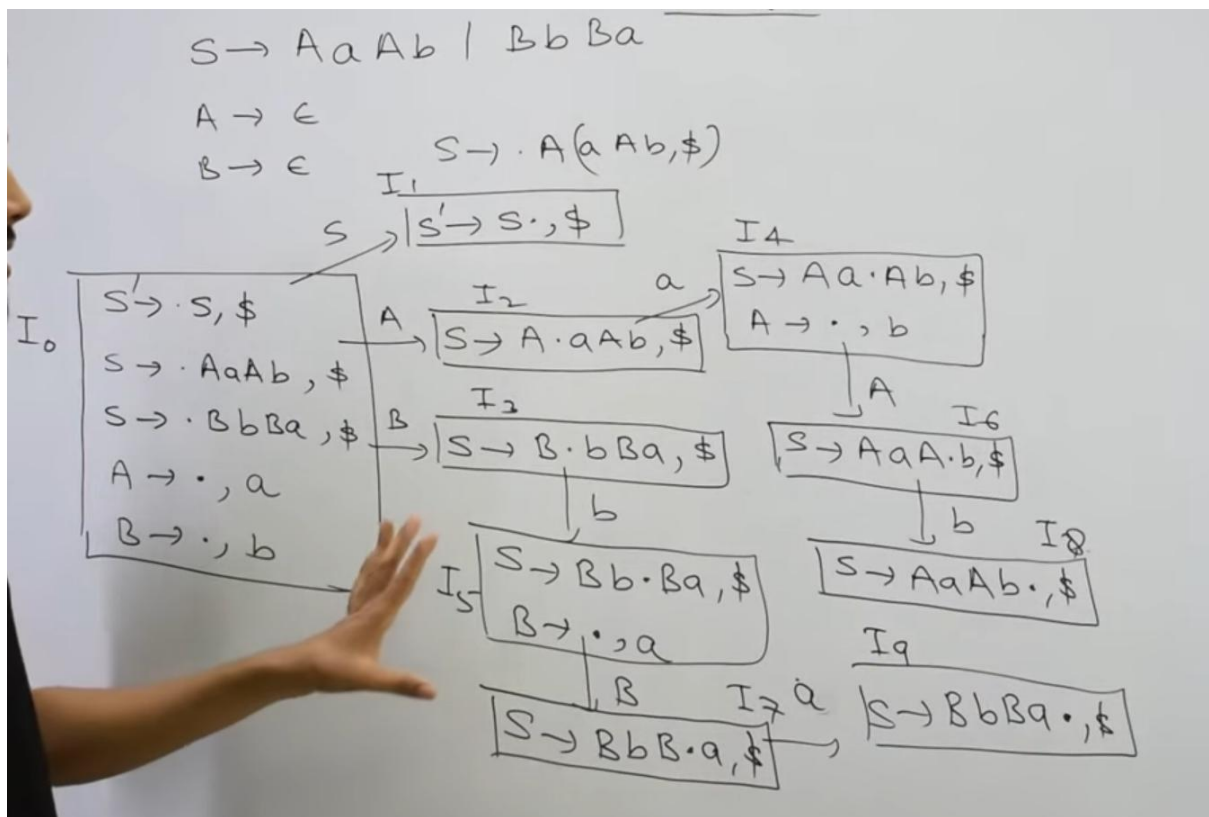 S → AaAb | BbBa
A → ϵ
B → ϵ
S → . A(aAb,$)
I1
S' → S·,$
S
I0
S' → ·S,$
S → ·AaAb,$
S → ·BbBa,$
A → ·,a
B → ·,b
A
I2
S → A·aAb,$
a
I4
S → Aa·Ab,$
A → ·,b
B
I3
S → B·bBa,$
A
I6
S → AaA·b,$
b
b
I5
S → Bb·Ba,$
B → ·,a
I8
S → AaAb·,$
B
I7
S → BbB·a,$
a
I9
S → BbBa·,$